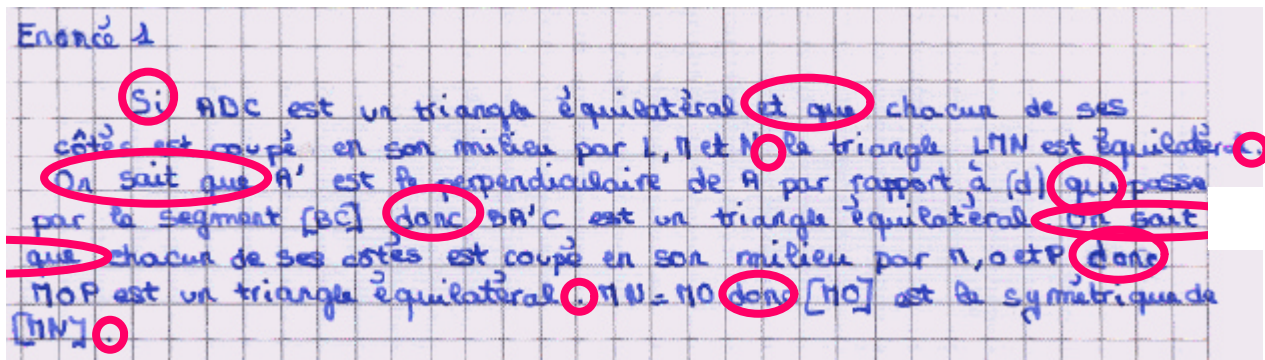 Enoncé 1
Si ABC est un triangle équilatéral et que chacun de ses
côtés est coupé en son milieu par L, M et N le triangle LMN est équilatéral.
On sait que A' est le perpendiculaire de A par rapport à (d) que passe
par le segment [BC] donc BA'C est un triangle équilatéral On sait
que chacun de ses côtés est coupé en son milieu par M, O et P donc
MOP est un triangle équilatéral. MN = MO donc [MO] est le symétrique de
[MN].